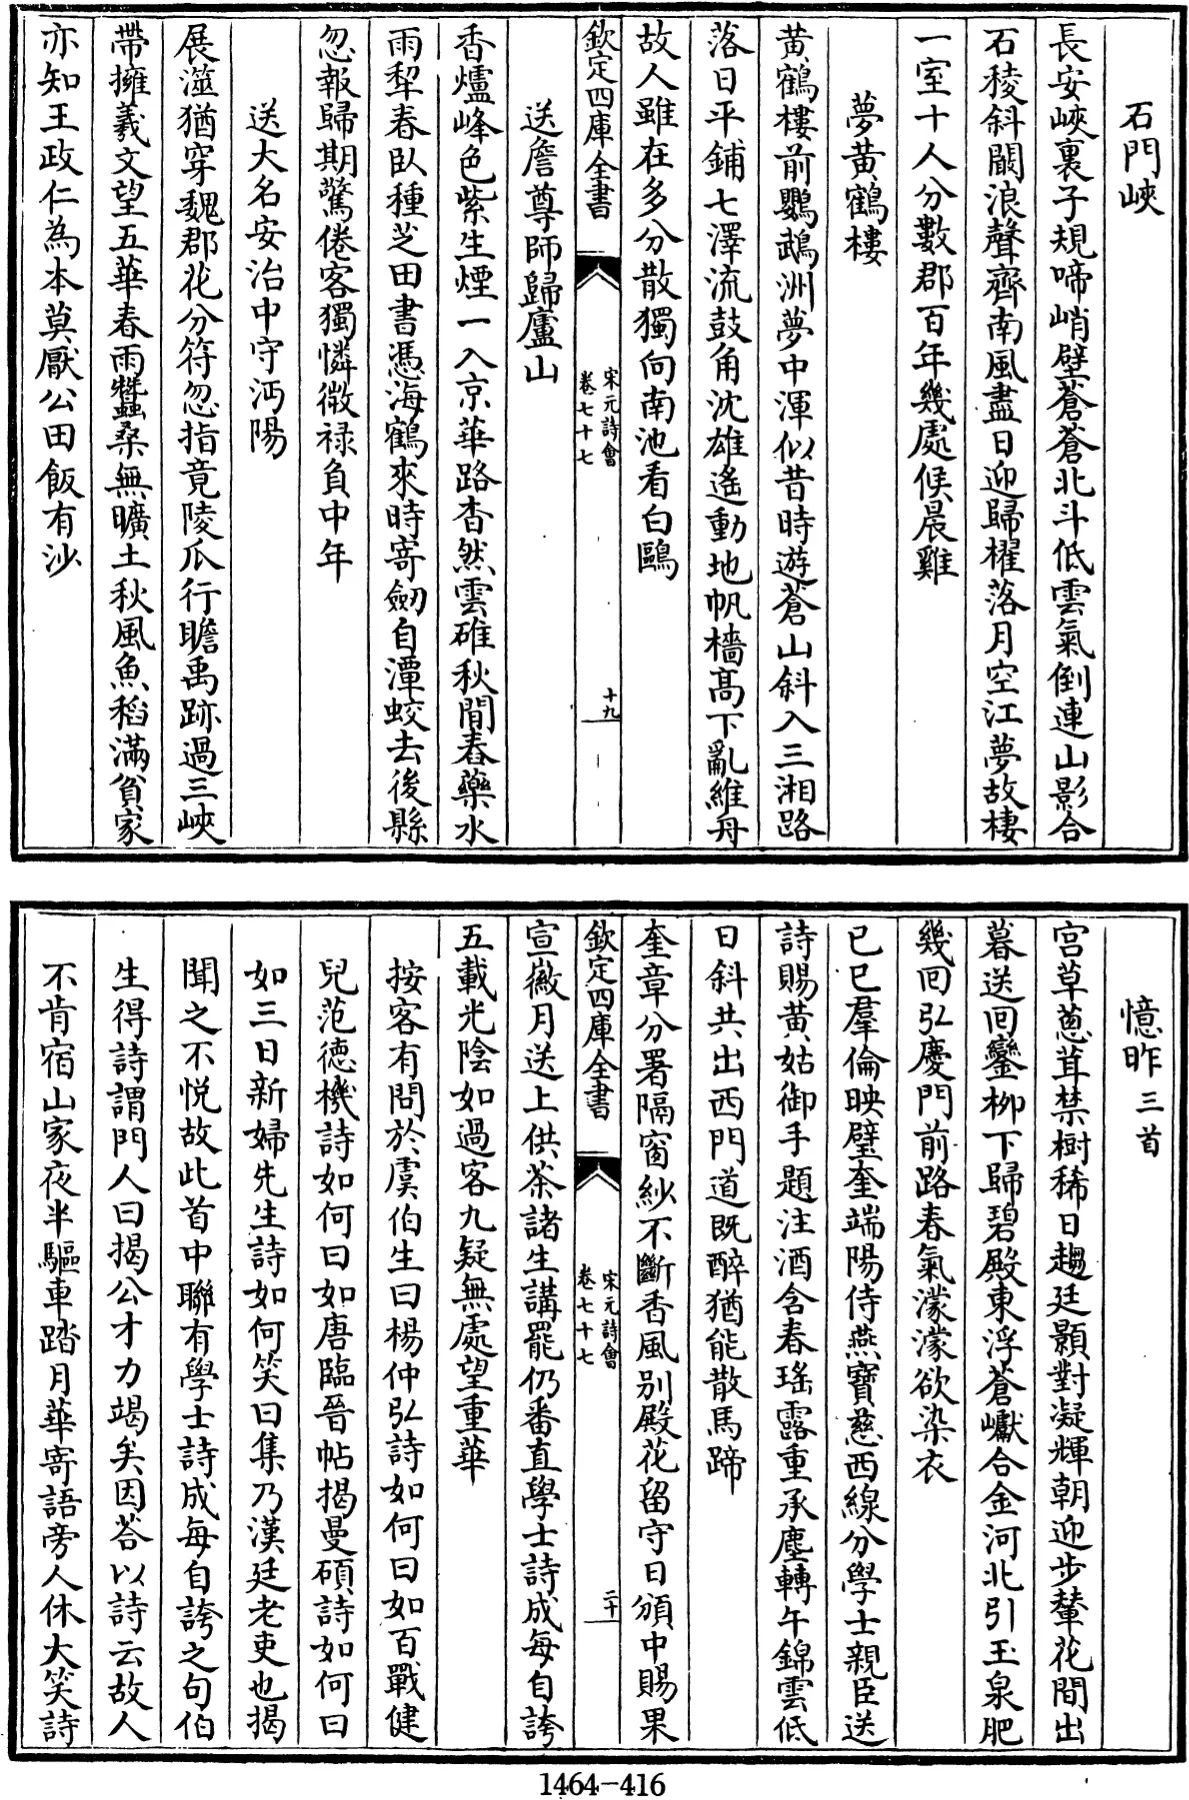 石門峽
長安峽裏子規啼峭壁蒼蒼北斗低雲氣倒連山影合
石稜斜鬭浪聲齊南風盡日迎歸櫂落月空江夢故棲
一室十人分數郡百年幾處候晨雞
夢黄鶴樓
黄鶴樓前鸚鵡洲夢中渾似昔時遊蒼山斜入三湘路
落日平鋪七澤流鼓角沈雄遙動地帆檣髙下亂維舟
故人雖在多分散獨向南池看白鷗
欽定四庫全書
宋元詩會
卷七十七
十九
送詹尊師歸廬山
香爐峰色紫生煙一入京華路杳然雲碓秋閒舂藥水
雨犂春臥種芝田書憑海鶴來時寄劒自潭蛟去後縣
忽報歸期驚倦客獨憐微禄負中年
送大名安治中守沔陽
展澨猶穿魏郡花分符忽指竟陵瓜行瞻禹跡過三峽
帶擁羲文望五華春雨蠶桑無曠土秋風魚稻滿貧家
亦知王政仁為本莫厭公田飯有沙
憶昨三首
宮草蔥茸禁樹稀日趨廷顥對凝輝朝迎步輦花間出
暮送回鑾柳下歸碧殿東浮蒼巘合金河北引玉泉肥
幾回弘慶門前路春氣濛濛欲染衣
已巳羣倫映璧奎端陽侍燕寶慈西線分學士親臣送
詩賜黄姑御手題注酒含春瑤露重承塵轉午錦雲低
日斜共出西門道既醉猶能散馬蹄
奎章分署隔窗紗不斷香風别殿花留守日頒中賜果
欽定四庫全書
宋元詩會
卷七十七
二十
宣徽月送上供茶諸生講罷仍番直學士詩成每自誇
五載光陰如過客九疑無處望重華
按客有問於虞伯生曰楊仲弘詩如何曰如百戰健
兒范德機詩如何曰如唐臨晉帖揭曼碩詩如何曰
如三日新婦先生詩如何笑曰集乃漢廷老吏也揭
聞之不悦故此首中聯有學士詩成每自誇之句伯
生得詩謂門人曰揭公才力竭矣因荅以詩云故人
不肯宿山家夜半驅車踏月華寄語旁人休大笑詩
1464-416